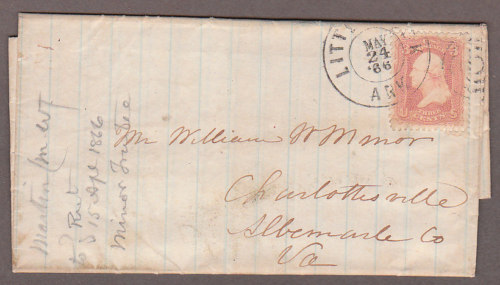 LITTLE ROCK
MAY
24
'66
ARK
3 CENTS
Mr William W Minor
Charlottesville
Albemarle Co
Va
Martin
Rect
15 Apl 1866
Minor Trustee